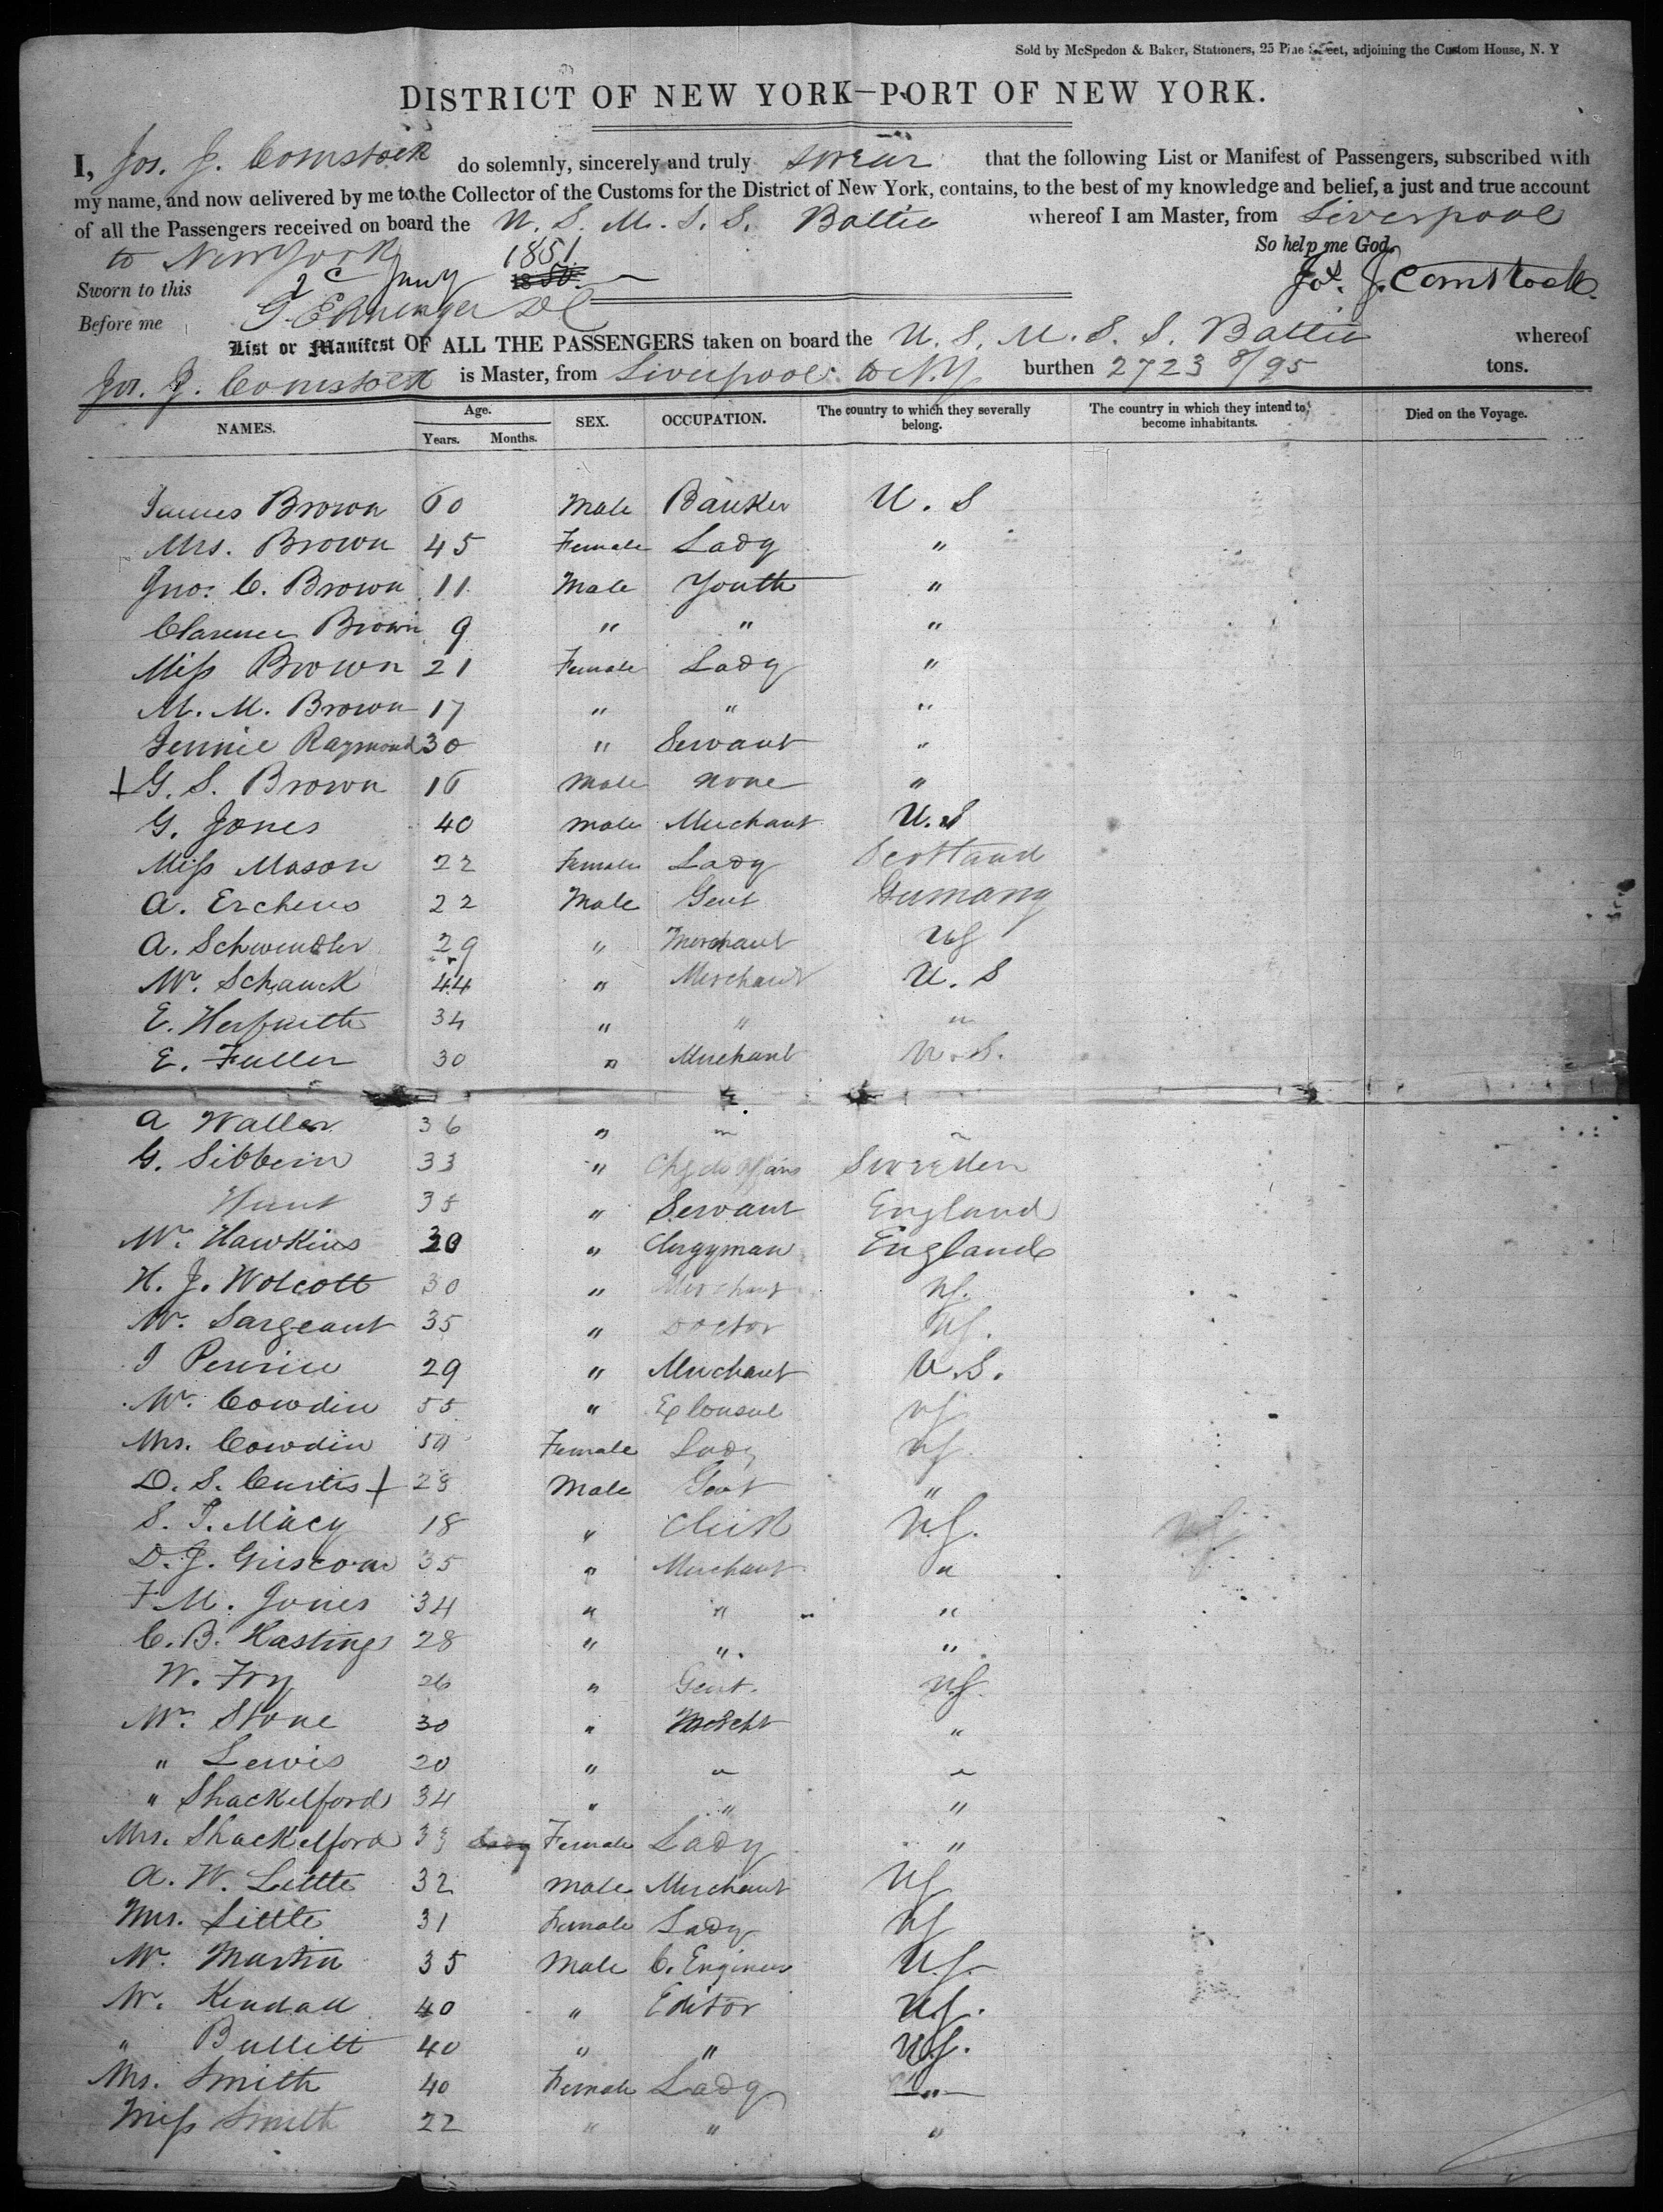 Sold by McSpedon & Baker, Stationers, 25 Pine Street, adjoining the Custom House, N. Y
DISTRICT OF NEW YORK—PORT OF NEW YORK.
I, Jos. J. Comstock do solemnly, sincerely and truly swear that the following List or Manifest of Passengers, subscribed with
my name, and now delivered by me to the Collector of the Customs for the District of New York, contains, to the best of my knowledge and belief, a just and true account
of all the Passengers received on board the U. S. M. S. S. Baltic whereof I am Master, from Liverpool
to New York 1851. So help me God.
Sworn to this 2 Jany 1850 Jos. J. Comstock.
Before me
List or Manifest OF ALL THE PASSENGERS taken on board the U. S. M. S. S. Baltic whereof
Jos. J. Comstock is Master, from Liverpool to N.Y. burthen 2723 8/95 tons.
NAMES. Age. Years. Months. SEX. OCCUPATION. The country to which they severally belong. The country in which they intend to become inhabitants. Died on the Voyage.
James Brown 60 Male Banker U. S
Mrs. Brown 45 Female Lady "
Jno. C. Brown 11 Male Youth "
Clarence Brown 9 " " "
Miss Brown 21 Female Lady "
M. M. Brown 17 " " "
Jennie Raymond 30 " Servant "
+ G. S. Brown 16 Male none "
G. Jones 40 male Merchant U. S
Miss Mason 22 Female Lady Scotland
A. Erchens 22 Male Gent Germany
A. Schwendler 29 " Merchant US
Mr. Schauck 44 " Merchant U. S
E. 34 " " "
E. Fuller 30 " Merchant U. S.
A Waller 36 " " "
G. Sibbern 33 " Chg de Affairs Sweden
Hunt 35 " Servant England
Mr. Hawkins 30 " Clergyman England
H. J. Wolcott 30 " Merchant US.
Mr. Sargeant 35 " Doctor US.
29 " Merchant U. S.
Mr. Cowdin 55 " Ex Consul US
Mrs. Cowdin 50 Female Lady US.
D. S. Curtis + 28 Male Gent "
S. T. Macy 18 " Clerk U.S. US
D. J. Griscom 35 " Merchant "
F. M. Jones 34 " " "
C. B. Hastings 28 " " "
W. Fry 26 " Gent. U.S.
Mr. Stone 30 " Mercht "
" Lewis 20 " " "
" Shackelford 34 " " "
Mrs. Shackelford 33 Lady Female Lady "
A. W. Little 32 male Merchant US
Mrs. Little 31 Female Lady US
Mr. Martin 35 Male C. Engineer U.S.
Mr. Kendall 40 " Editor U.S.
" Bullitt 40 " " U.S.
Mrs. Smith 40 Female Lady "
Miss Smith 22 " " "